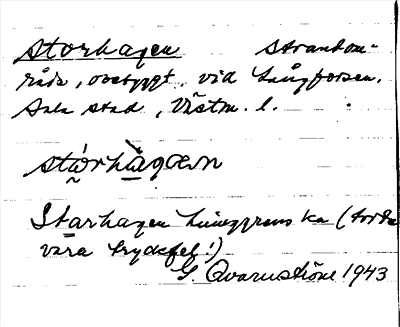 Storhagen strandom-
råde, obebyggt, vid Långforsen.
Sala stad, Västm. l.
stòrhàgæn
Starhagen Ljunggrens ka (torde
vara tryckfel!)
G. Qvarnström 1943